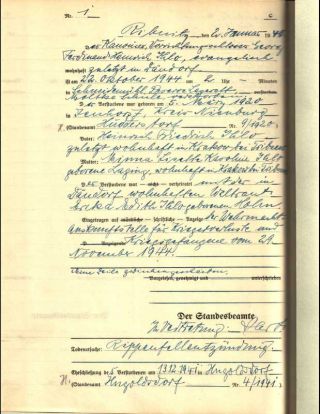 Nr. 1 C
Ribnitz, den 20. Januar 1945
Der Kanonier, Georg
Ferdinand Heinrich Ihlo, evangelisch
wohnhaft zuletzt in Dändorf
ist am 22. Oktober 1944 um 2 Uhr — Minuten
in Schneidemühl,
Moltke Schule verstorben.
Der Verstorbene war geboren am 5. März 1920
in Kreis Nienburg
(Standesamt Nr. 9/1920)
Vater: Heinrich Friedrich Ihlo
zuletzt wohnhaft in Krakow bei
Mutter: Minna Lisette Karoline Ihlo
geborene wohnhaft in Krakow bei
Der Verstorbene war — nicht — verheiratet mit der in
Dändorf wohnhaften
Erika Edith Ihlo geborenen Holm
Eingetragen auf mündliche — schriftliche — Anzeige der Wehrmacht
auskunftstelle für Kriegsverluste und
D Anzeigende Kriegsgefangene vom 29.
November 1944.
Vorgelesen, genehmigt und unterschrieben
Der Standesbeamte
In Vertretung:
Todesursache: Rippenfellentzündung
Eheschließung des Verstorbenen am 13.12.1941 in Hugoldsdorf
(Standesamt Hugoldsdorf Nr. 4/1941)